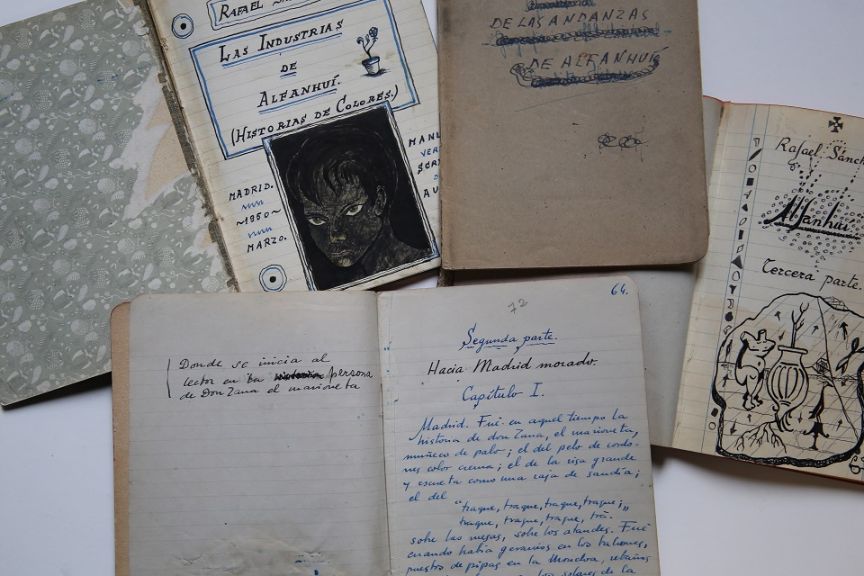 RAFAEL
LAS INDUSTRIAS
DE
ALFANHUÍ.
(HISTORIAS DE COLORES.)
MADRID.
~1950~
MARZO.
DE LAS ANDANZAS
DE ALFANHUÍ
Rafael Sánch
Alfanhuí
Tercera parte.
Donde se inicia al
lector en la persona
de Don Zana el marioneta
72
64.
Segunda parte.
Hacia Madrid morado.
Capítulo I.
Madrid. Fué en aquel tiempo la
historia de don Zana, el marioneta,
muñeco de palo; el del pelo de cordo-
nes color crema; el de la risa grande
y escueta como una raja de sandía;
el del
"traque, traque, traque, traque;
traque, traque, traque, trá."
sobre las mesas, sobre los ataúdes. Fué
cuando había geranios en los balcones,
puestos de pipas en la Moncloa, rebaños
los solares de la